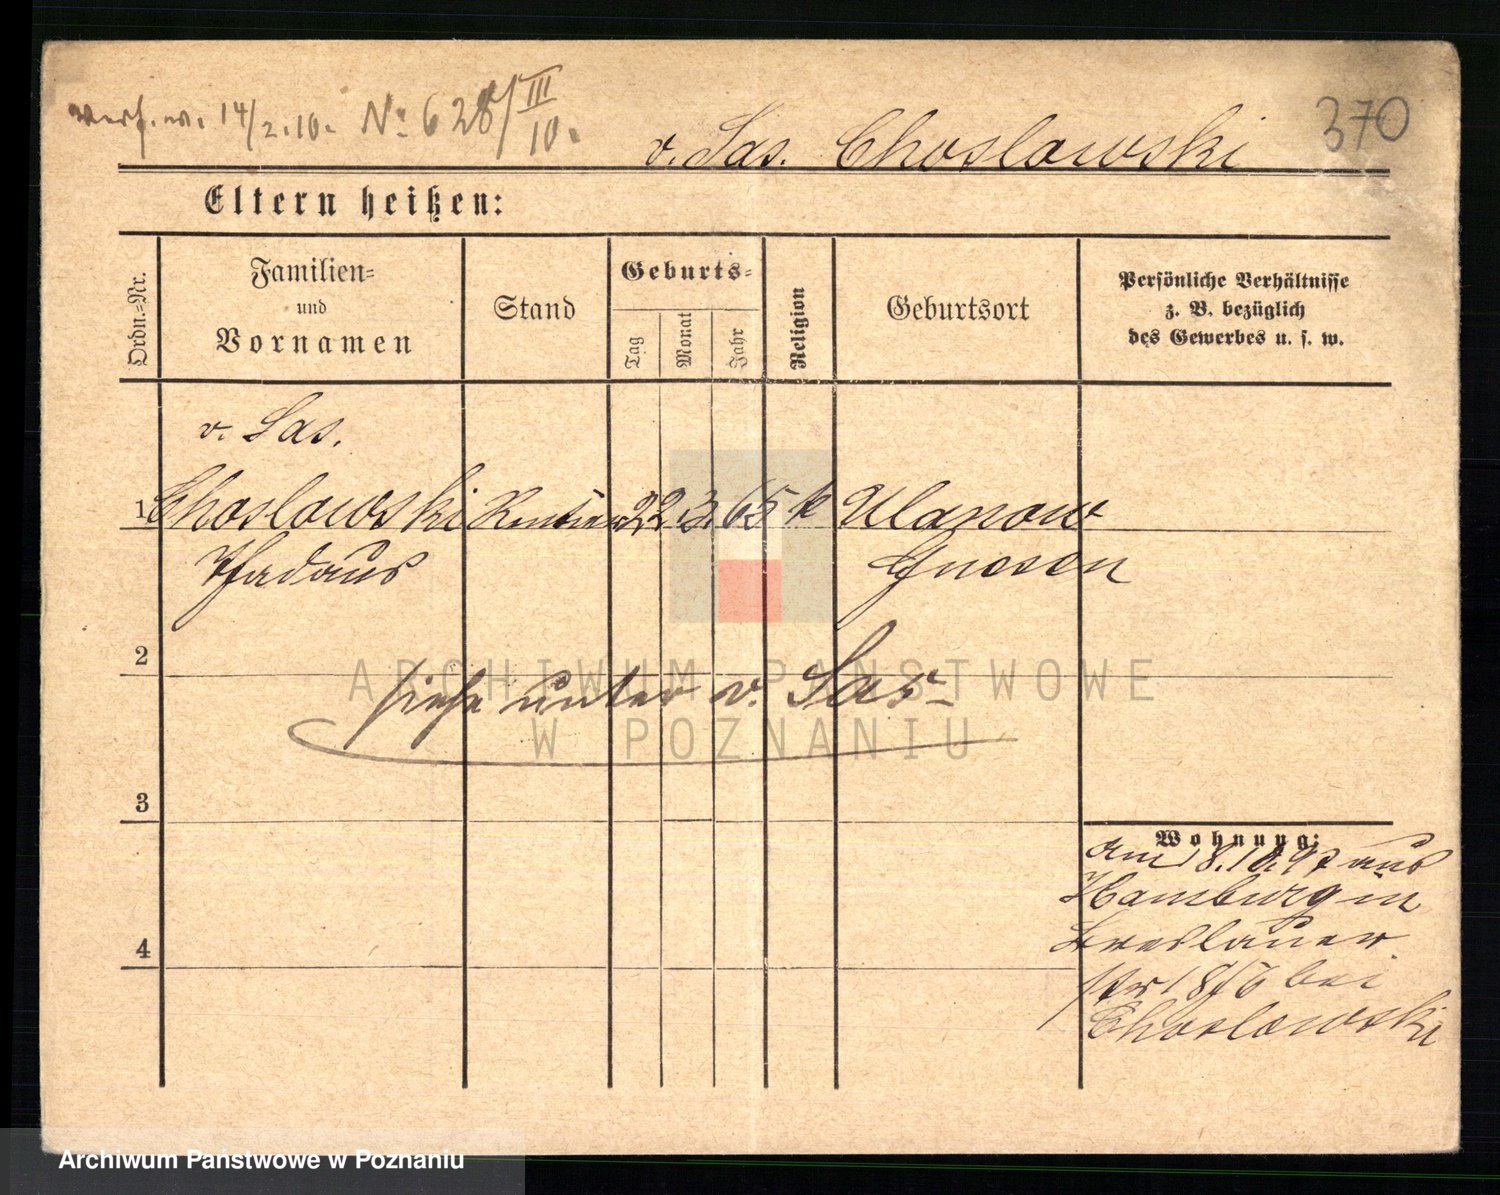 14/2.10. No 628/III 10.
v. Sas. Choslowski
370
Eltern heißen:
Ordn.-Nr.
Familien-
und
Vornamen
Stand
Geburts-
Tag
Monat
Jahr
Religion
Geburtsort
Persönliche Verhältnisse
z. B. bezüglich
des Gewerbes u. s. w.
v. Sas.
1 Choslowski Rentier 22. 3. 65 k Ulanow
Thadaus Gnesen
2
siehe unter v. Sas
3
Wohnung:
am 18.10.97 aus
Hamburg in
Breslauer
str 18/6 bei
Choslowski
4
ARCHIWUM PAŃSTWOWE
W POZNANIU
Archiwum Państwowe w Poznaniu